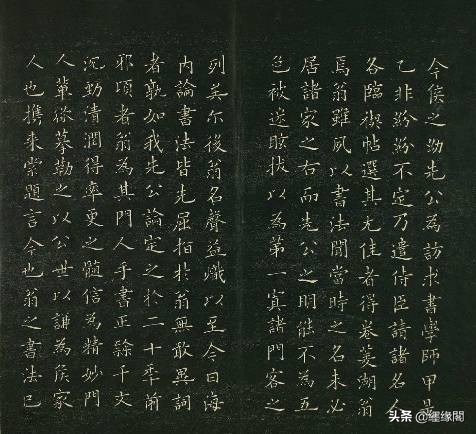 今侯之幼先公為訪求書學師甲是
乙非紛紛不定乃遣侍臣請諸名人
各臨禊帖選其尤佳者得卷菱湖翁
焉翁雖夙以書法聞當時之名未必
居諸家之右而先公之明能不為五
色被迷眩拔以為第一寘諸門客之
列矣尔後翁名聲益熾以至今日海
内論書法皆先屈指於翁無敢異詞
者孰如我先公論定之於二十季前
邪頃者翁為其門人手書正隸千文
沉勁清潤得率更之髓信為精妙門
人輩摹勒之以公世以謙為侯家
人也携来索題言今也翁之書法已
头条 @纏缘閣